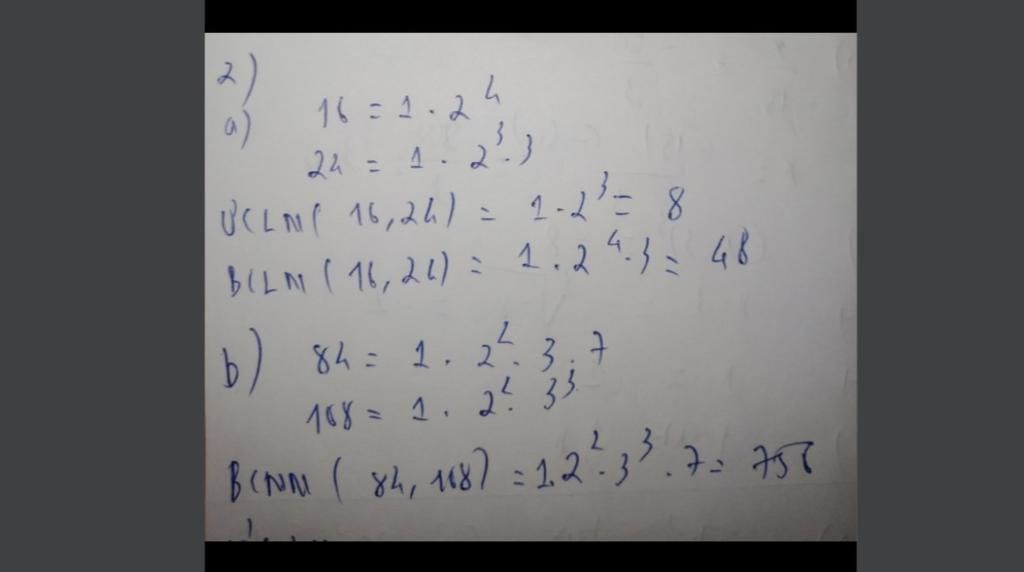 2)
a) 16 = 1 . 2⁴
24 = 1 . 2³ . 3
ƯCLN( 16,24) = 1.2³ = 8
BCLN ( 16, 24) = 1 . 2⁴.3 = 48
b) 84 = 1 . 2² . 3 . 7
108 = 1 . 2² . 3³
BCNN ( 84, 108) = 1.2² . 3³ . 7 = 756